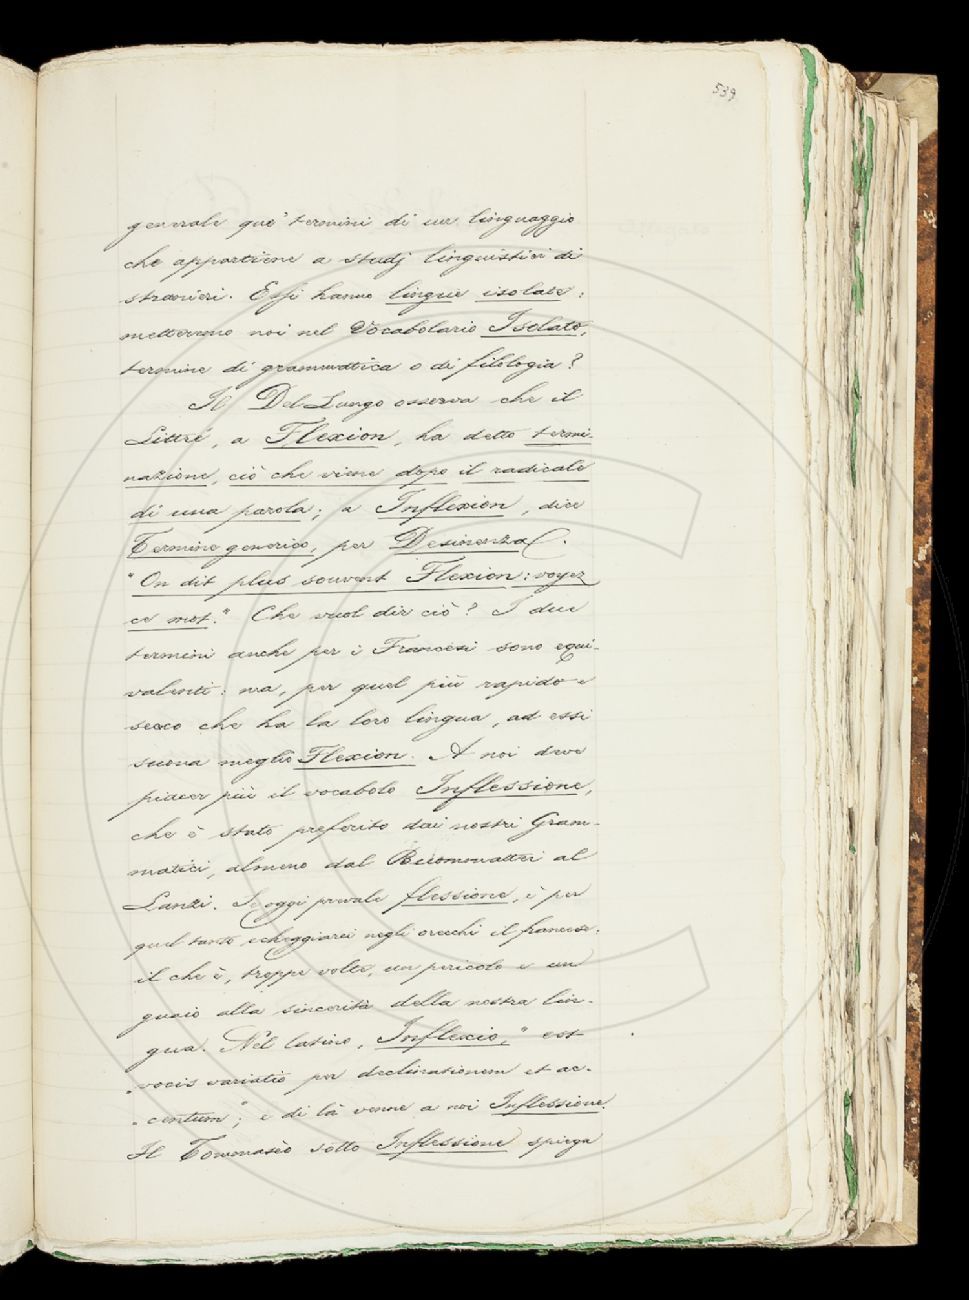 539
generale que' termini di un linguaggio
che appartiene a studj linguistici di
stranieri. Essi hanno lingue isolate:
metteremo noi nel Vocabolario Isolato,
termine di grammatica o di filologia?
Il Del Lungo osserva che il
Littré, a Flexion, ha detto termi-
nazione, ciò che viene dopo il radicale
di una parola; a Inflexion, dice
Termine generico, per Desinenza.
"On dit plus souvent Flexion: voyez
ce mot." Che vuol dir ciò? I due
termini anche per i Francesi sono equi-
valenti: ma, per quel più rapido e
secco che ha la loro lingua, ad essi
suona meglio Flexion. A noi deve
piacer più il vocabolo Inflessione,
che è stato preferito dai nostri Gram-
matici, almeno dal Buommattei al
Lanzi. Se oggi prevale flessione, è per
quel tanto echeggiarci negli orecchi il francese:
il che è, troppe volte, un pericolo e un
guaio alla sincerità della nostra lin-
gua. Nel latino, Inflexio, "est
"vocis variatio per declinationem et ac-
"centum"; e di là venne a noi Inflessione.
Il Tommaseo sotto Inflessione spiega